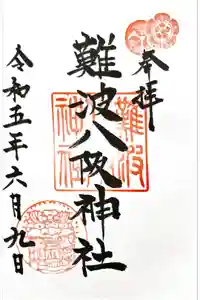 奉拝
難波八阪神社
令和五年六月九日